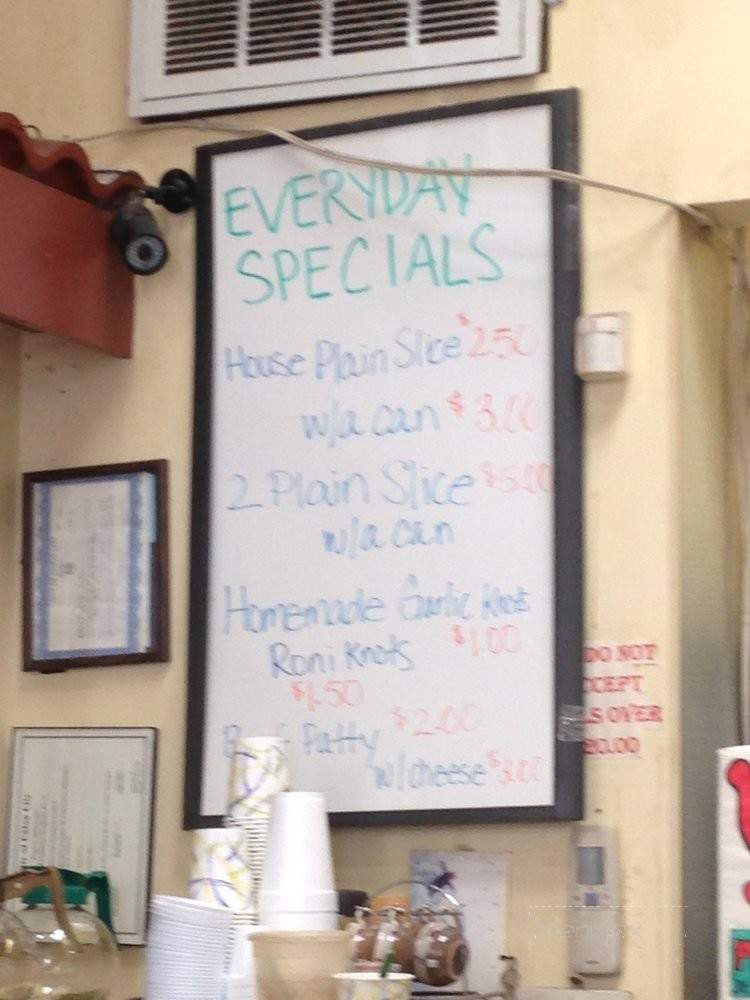 EVERYDAY
SPECIALS
House Plain Slice $2.50
w/a can $3.00
2 Plain Slice $5.00
w/a can
Homemade Garlic Knots
$1.00
Roni Knots
$1.50
Beef Patty $2.00
w/cheese $3.00
DO NOT
CCEPT
LS OVER
20.00
menupix